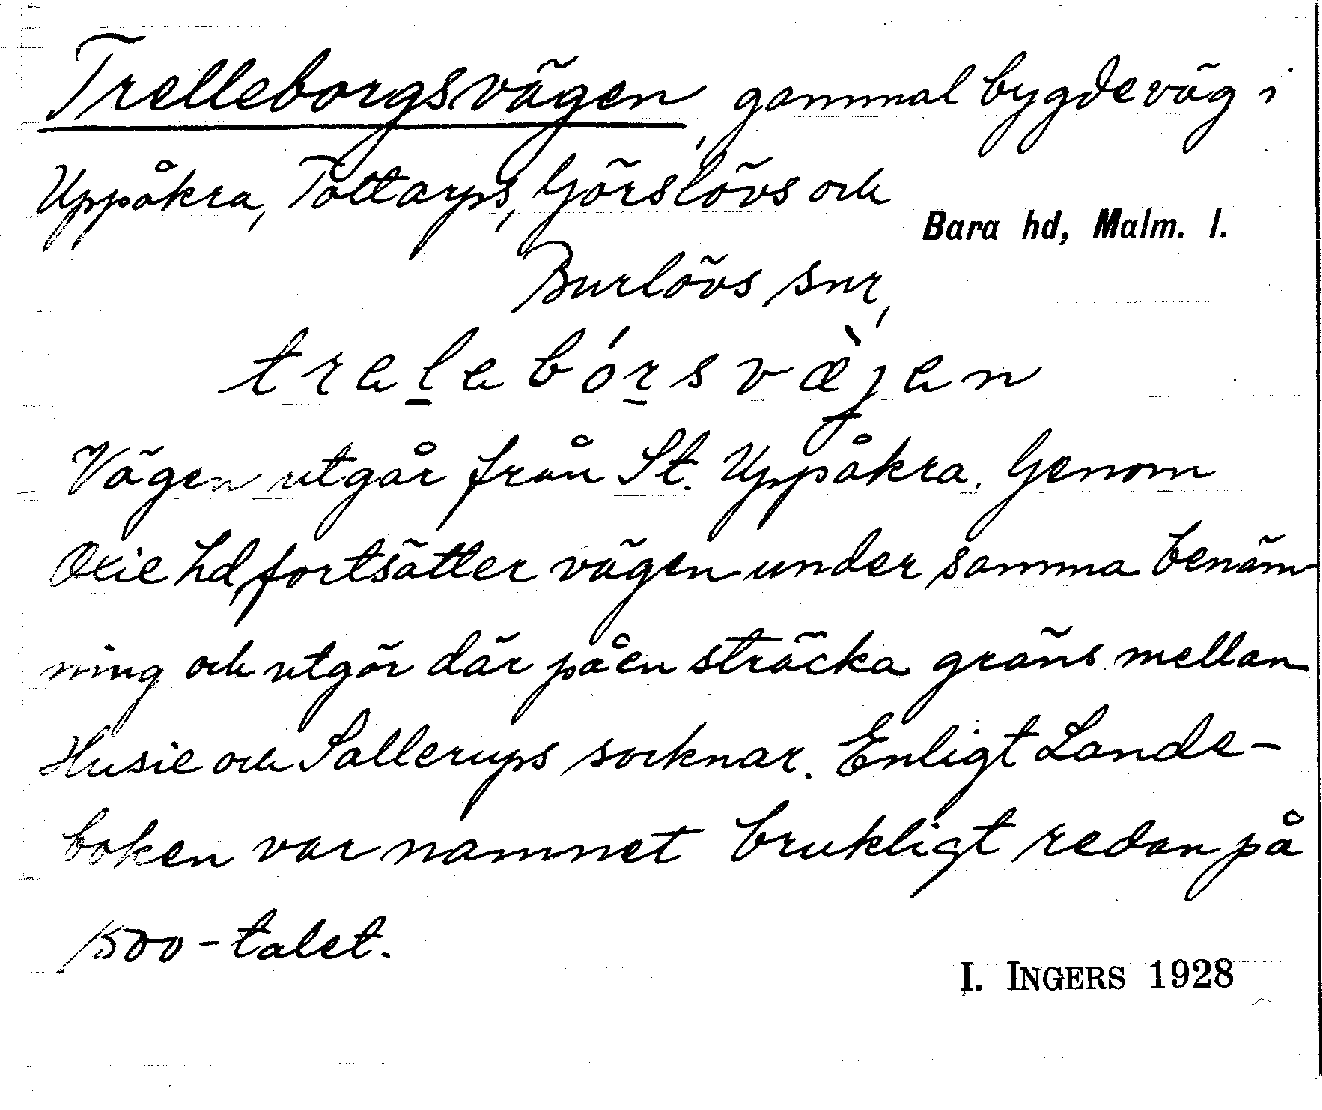 Trelleborgsvägen, gammal bygdeväg i
Uppåkra, Tottarps, Görslövs och
Bara hd, Malm. l.
Burlövs snr,
trelebórsvæ̀jen
Vägen utgår från St. Uppåkra. Genom
Oxie hd fortsätter vägen under samma benäm-
ning och utgör där på en sträcka gräns mellan
Husie och Sallerups socknar. Enligt Lande-
boken var namnet brukligt redan på
1500-talet.
I. INGERS 1928